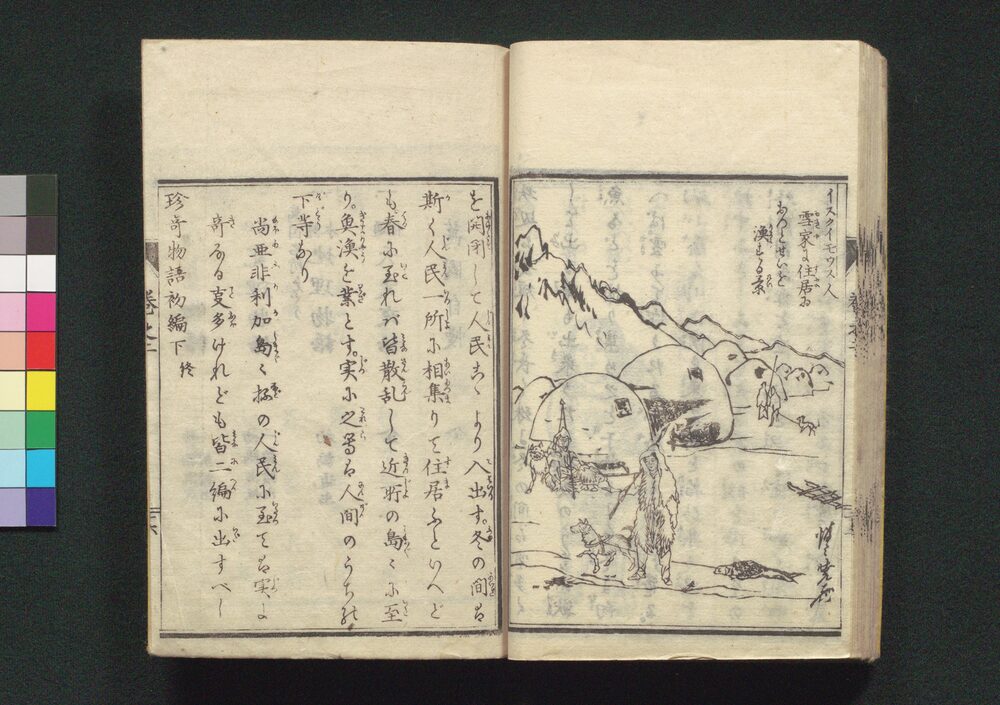 イスタイモウス人
雪家に住居に
漁する景
を開閉して人民こゝより入出す。冬の間は
斯く人民一所に相集りて住居ふといへど
も春に至れバ皆散乱して近所の島々に至
り。魚漁を業とす。実に之等は人間のうちの
下等なり
尚亜非利加島々抔の人民に至ては実に
奇なる事多けれども皆二編に出すべし
珍奇物語初編下終